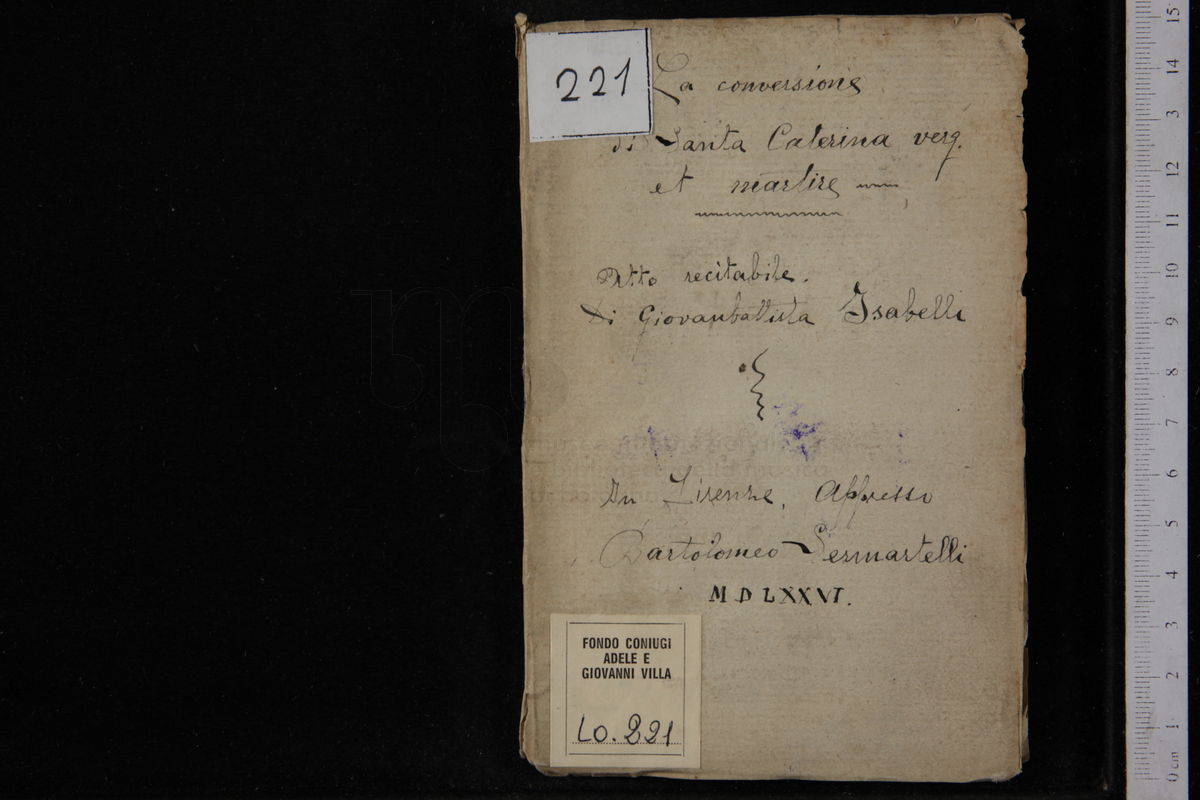 221
La conversione
di Santa Caterina verg.
et martire
Atto recitabile.
Di Giovanbattista Isabelli
In Firenze, Appresso
Bartolomeo Sermartelli
MDLXXVI.
FONDO CONIUGI
ADELE E
GIOVANNI VILLA
LO. 221
15
14
3
12
11
10
9
8
7
5
4
3
2
1
0 cm